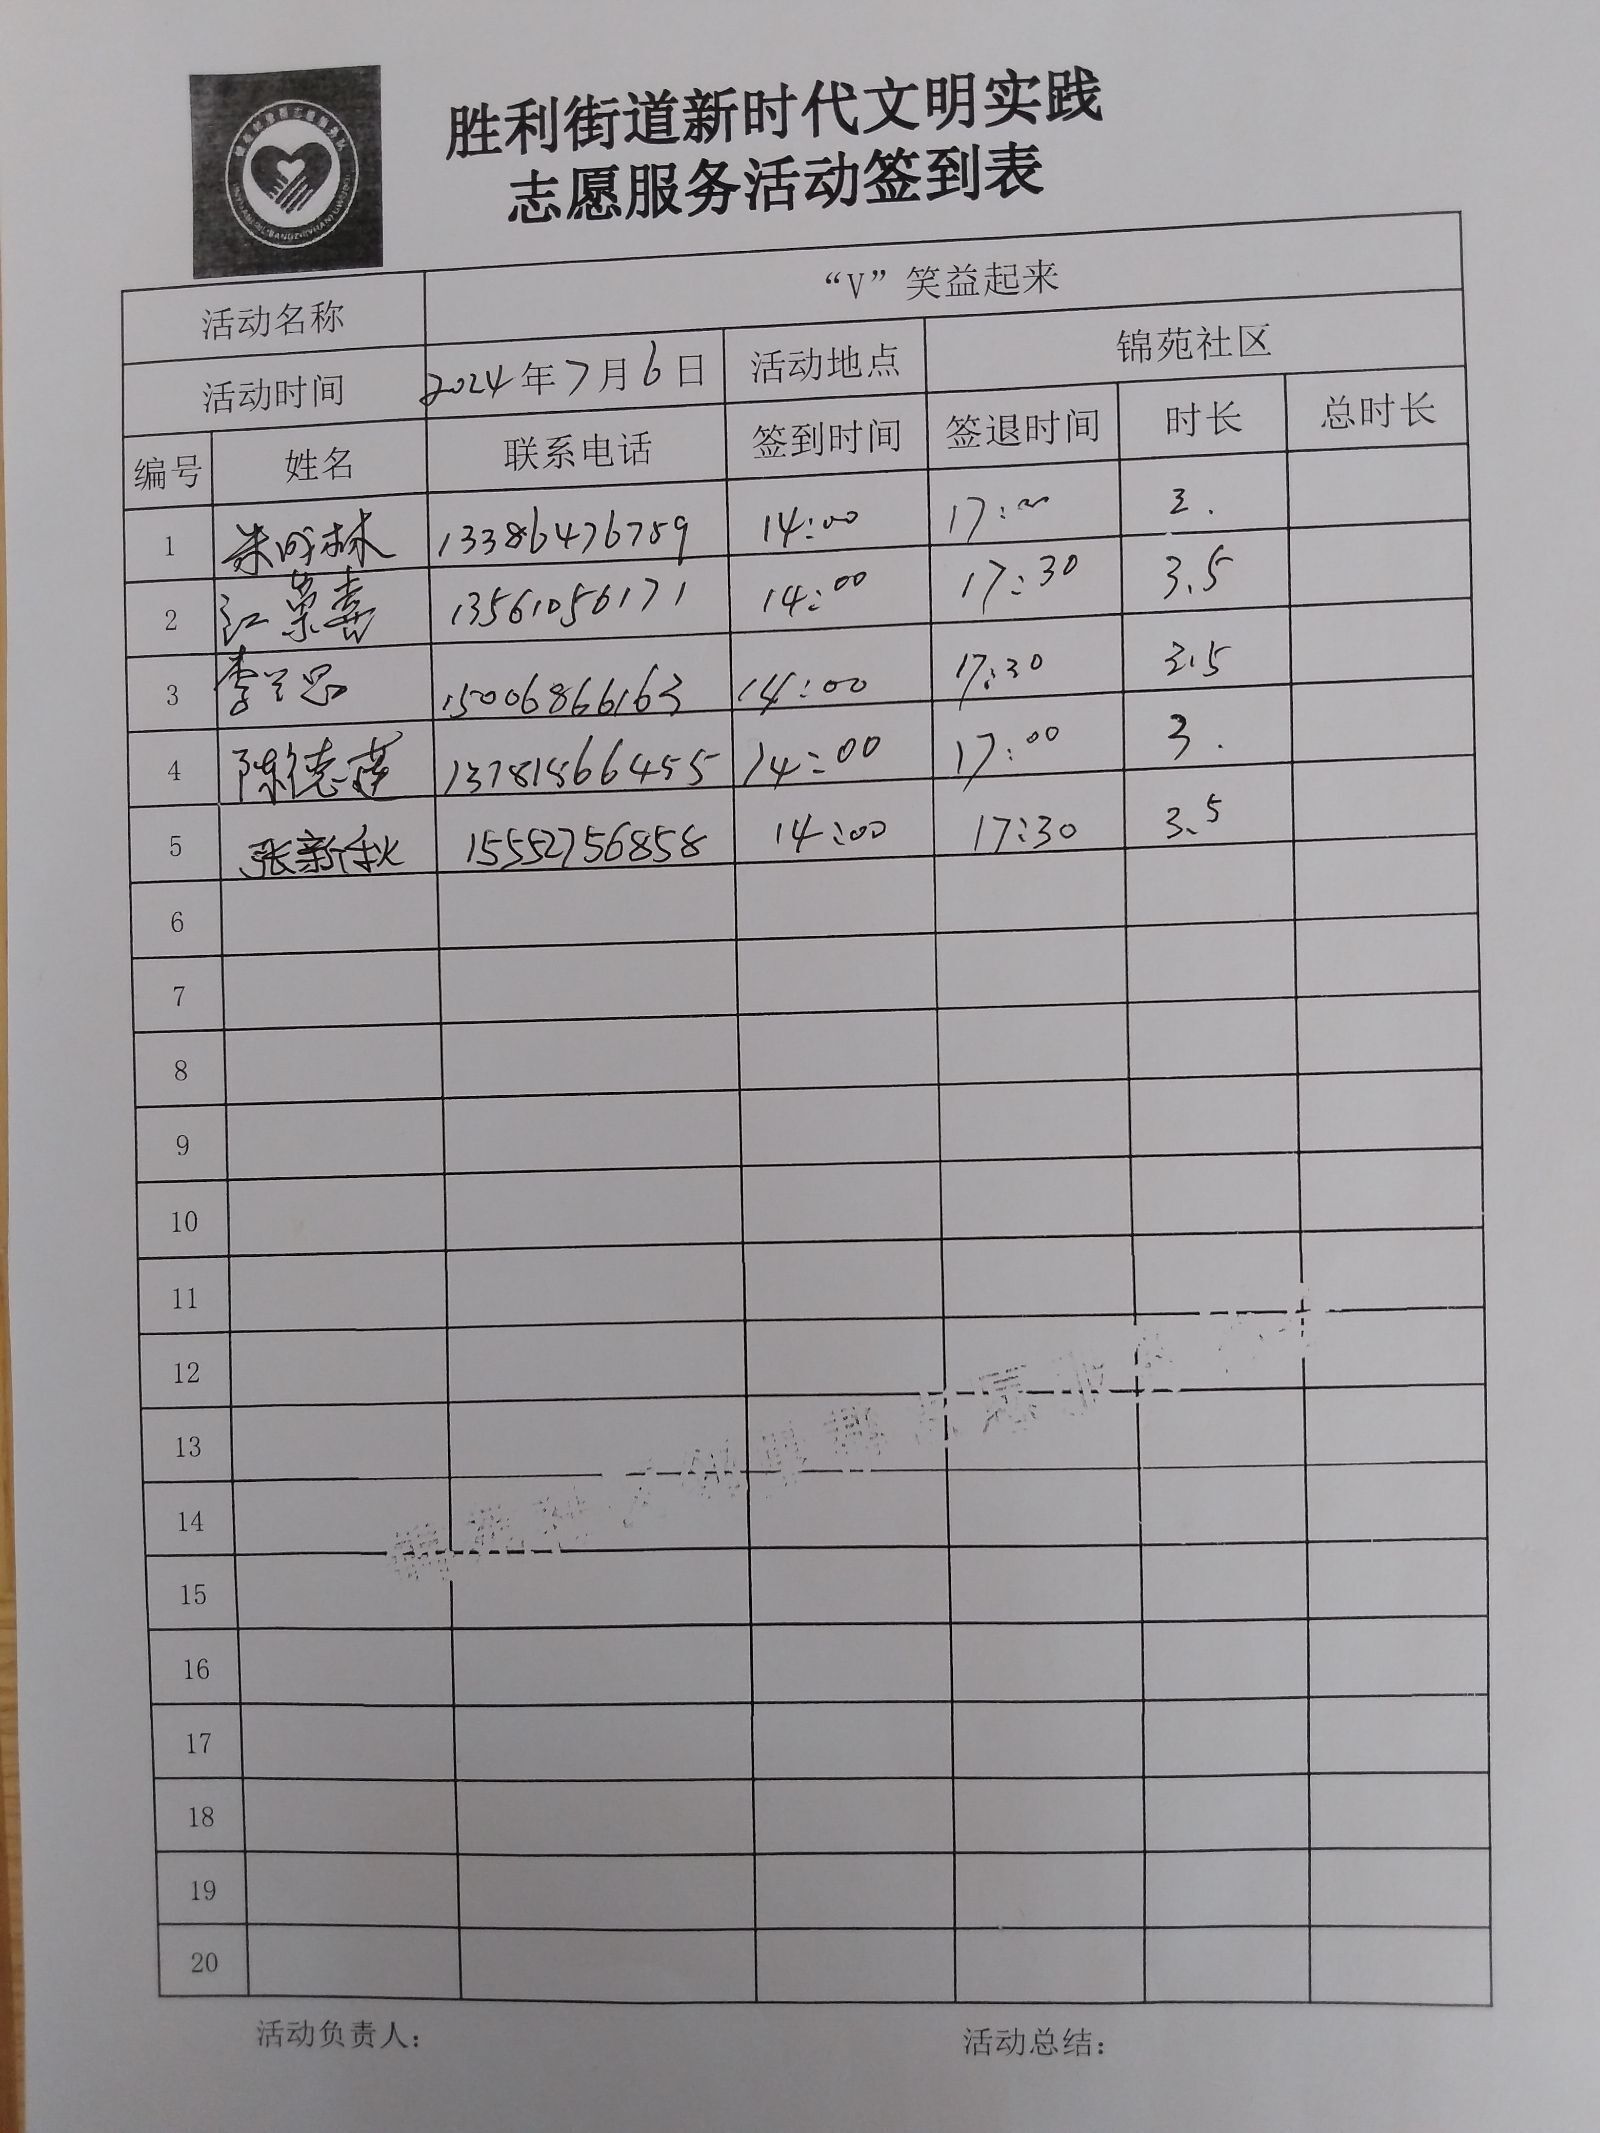 胜利街道新时代文明实践
志愿服务活动签到表
活动名称 “V”笑益起来
活动时间 2024年7月6日 活动地点 锦苑社区
编号 姓名 联系电话 签到时间 签退时间 时长 总时长
1 朱林 13386476789 14:00 17:00 3.
2 江荣喜 13561056171 14:00 17:30 3.5
3 李兰忠 15006866163 14:00 17:30 3.5
4 陈德莲 13781566455 14:00 17:00 3.
5 张新秋 15552756858 14:00 17:30 3.5
6
7
8
9
10
11
12
13
14
15
16
17
18
19
20
活动负责人： 活动总结：